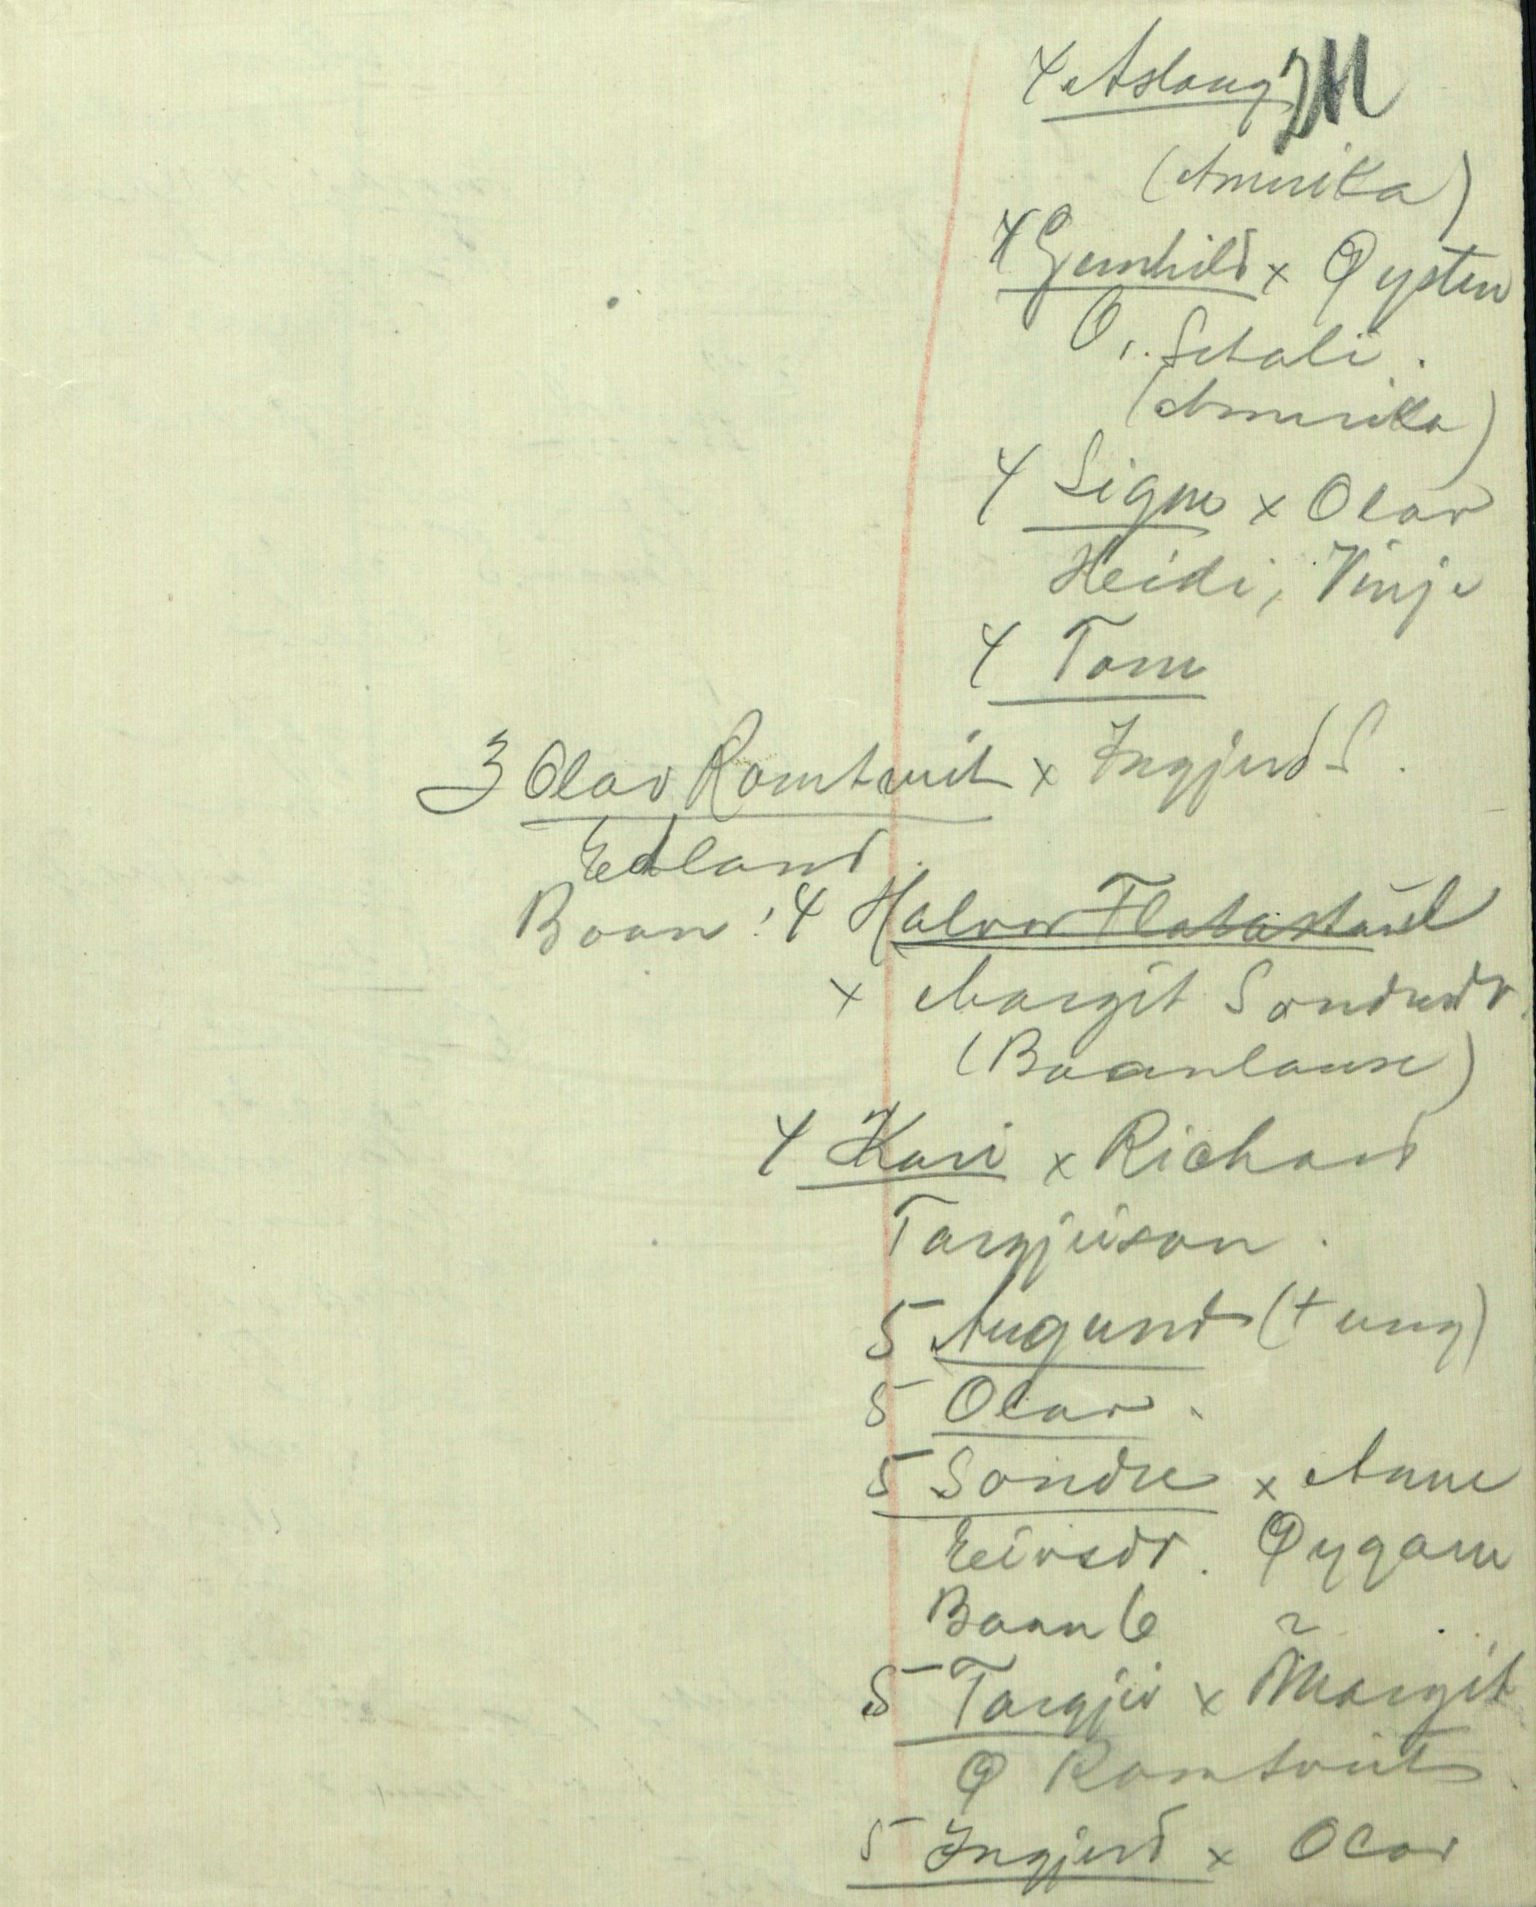 4 Aslaug
(Amerika)
4 Gunhild x Øysten
O. Setali.
(Amerika)
4 Signe x Olav
Heidi, Vinje
4 Tone
3 Olav Romtveit x Ingjerd S.
Edland.
Boan: 4 Halvor Flatastøul
x Margit Sondresdr.
(Baanlause)
4 Kari x Richard
Targjeison.
5 Augund (+ ung)
5 Olav.
5 Sondre x Anne
Eivsdr. Øygarn
Baan 6
5 Targjei x Margit
Ø Romtveit.
5 Ingjerd x Olav